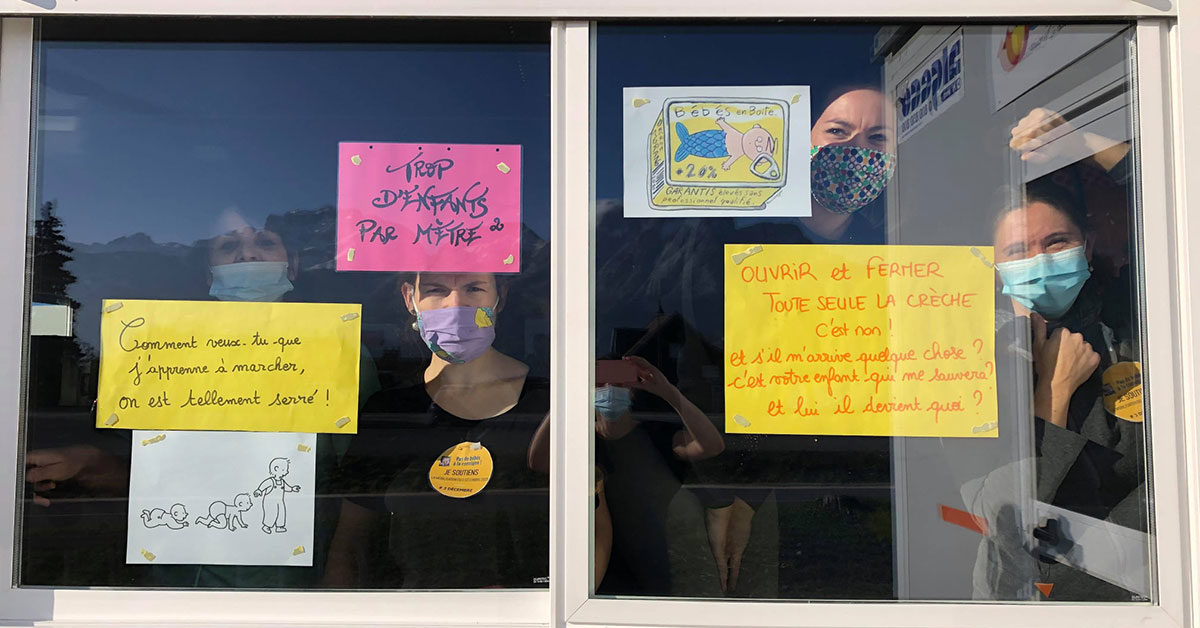 TROP
D'ENFANTS
PAR MÈTRE²
Comment veux-tu-que
j'apprenne à marcher,
on est tellement serré !
Pas de bébés
à la consigne !
JE SOUTIENS
Bébés en Boîte
+20%
GARANTIS élevés sans
professionnel qualifié.
OUVRIR et FERMER
TOUTE SEULE LA CRÈCHE
C'est non !
et s'il m'arrive quelque chose ?
c'est votre enfant qui me sauvera ?
et lui il devient quoi ?
algeco
JE SOUTIENS